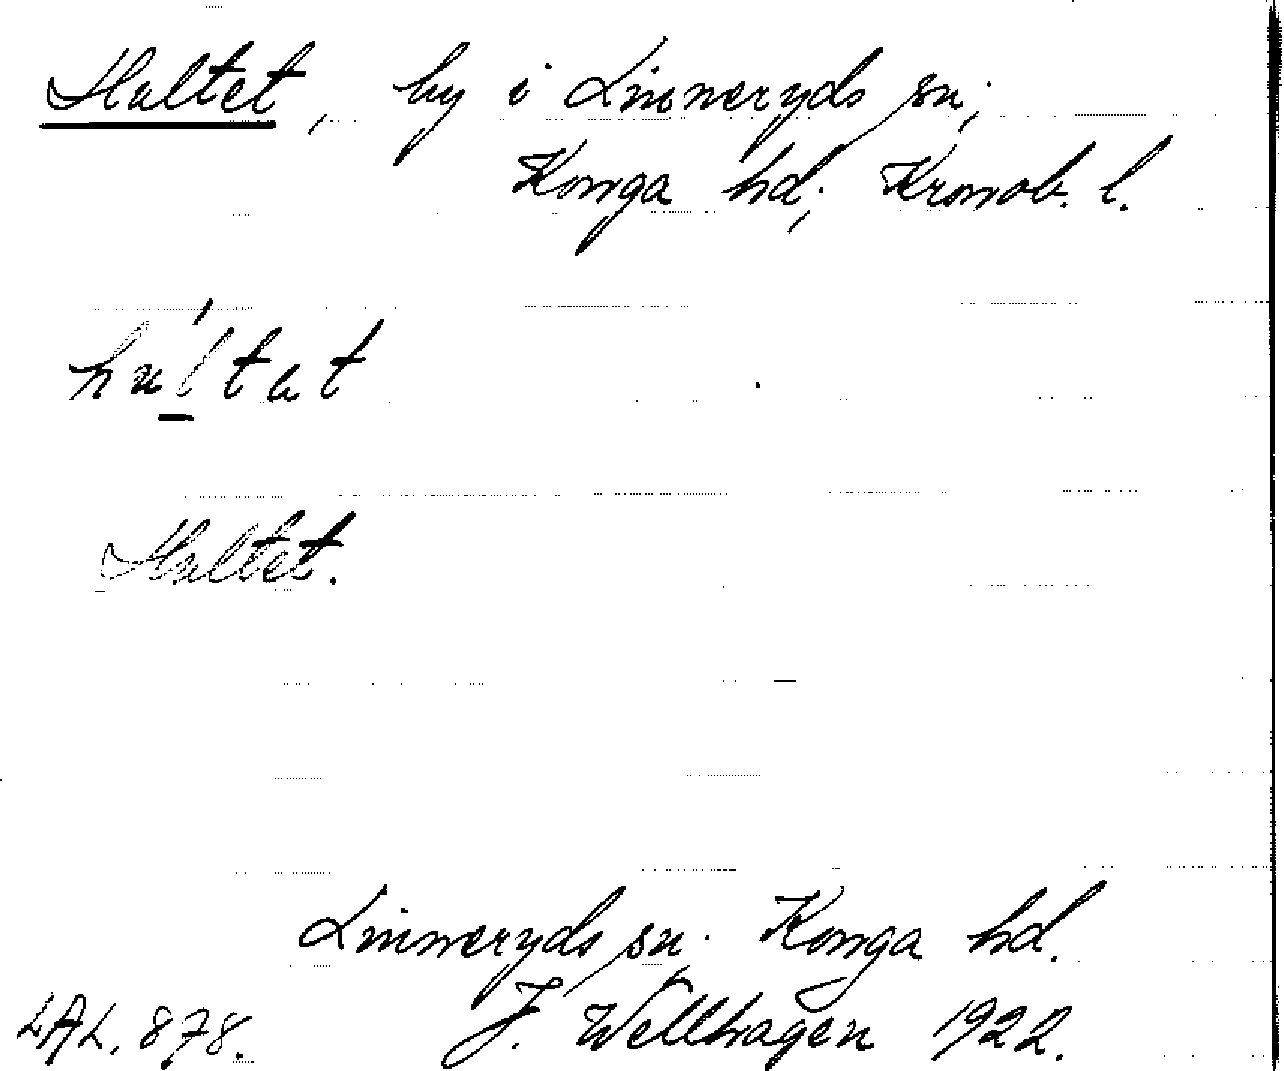 Hultet, by i Linneryds sn;
Konga hd; Kronob. l.
Hultet.
Linneryds sn. Konga hd.
LAL. 878. J. Wellhagen 1922.